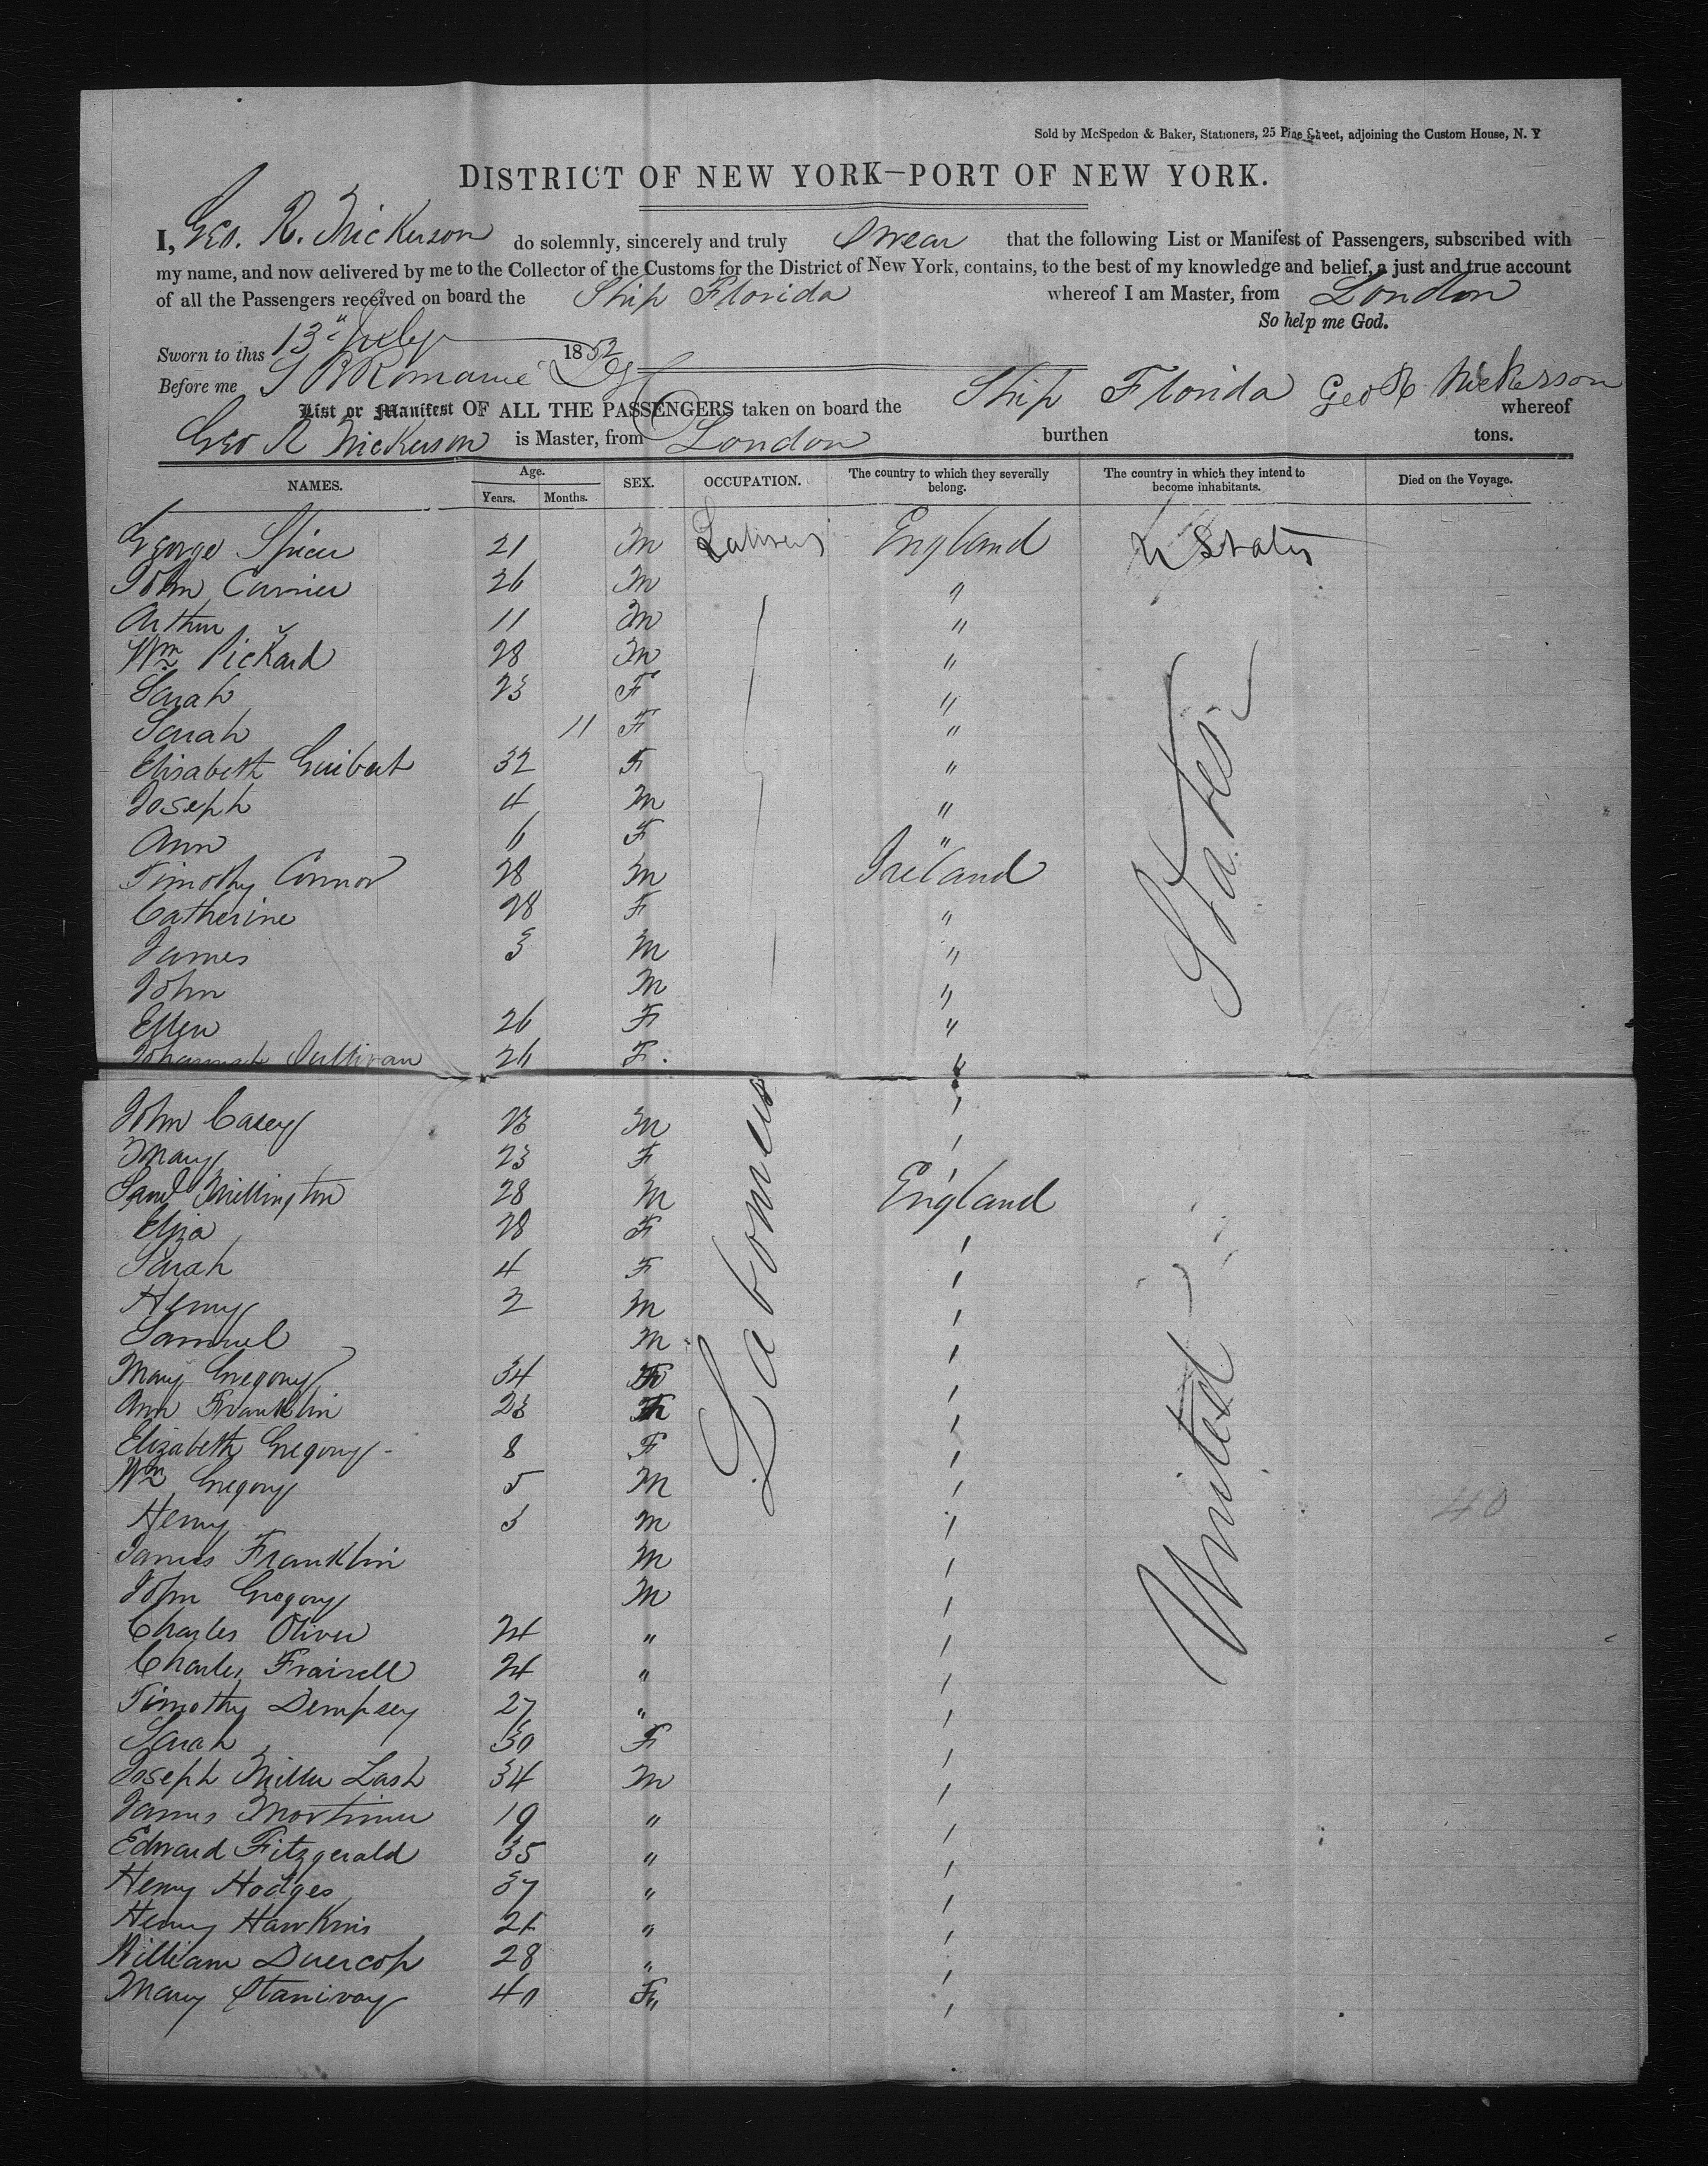 Sold by McSpedon & Baker, Stationers, 25 Pine Street, adjoining the Custom House, N. Y
DISTRICT OF NEW YORK—PORT OF NEW YORK.
I, Geo. R. Nickerson do solemnly, sincerely and truly Swear that the following List or Manifest of Passengers, subscribed with
my name, and now delivered by me to the Collector of the Customs for the District of New York, contains, to the best of my knowledge and belief, a just and true account
of all the Passengers received on board the Ship Florida whereof I am Master, from London
So help me God.
Sworn to this 13" July 1852
Before me Geo R Nickerson
List or Manifest OF ALL THE PASSENGERS taken on board the Ship Florida whereof
Geo R Nickerson is Master, from London burthen tons.
NAMES. Age. Years. Months. SEX. OCCUPATION. The country to which they severally belong. The country in which they intend to become inhabitants. Died on the Voyage.
George Spicer 21 M Laborers England U States
John Currier 26 M "
Arthur 11 M "
Wm Pickard 28 M "
Sarah 23 F "
Sarah 11 F "
Elisabeth Guibert 32 F "
Joseph 4 M "
Ann 6 F "
Timothy Connor 28 M Ireland
Catherine 28 F "
James 3 M "
John M "
Ellen 26 F "
Johannah Sullivan 26 F "
John Casey M
Mary 23 F
Saml Millington 28 M England
Eliza 28 F
Sarah 4 F
Henry 2 M
Samuel M
Mary Gregory 34 F
Ann Franklin 23 F
Elizabeth Gregory 8 F
Wm Gregory 5 M
Henry 3 M
James Franklin M
John Gregory M
Charles Oliver 24 "
Charles 24 "
Timothy Dempsey 27 "
Sarah 30 F
Joseph Miller Lash 34 M
James Mortimer 19 "
Edward Fitzgerald 35 "
Henry Hodges 37 "
Henry Hawkins "
William Duercop 28 "
Mary 40 F"
Laborers
United States
40